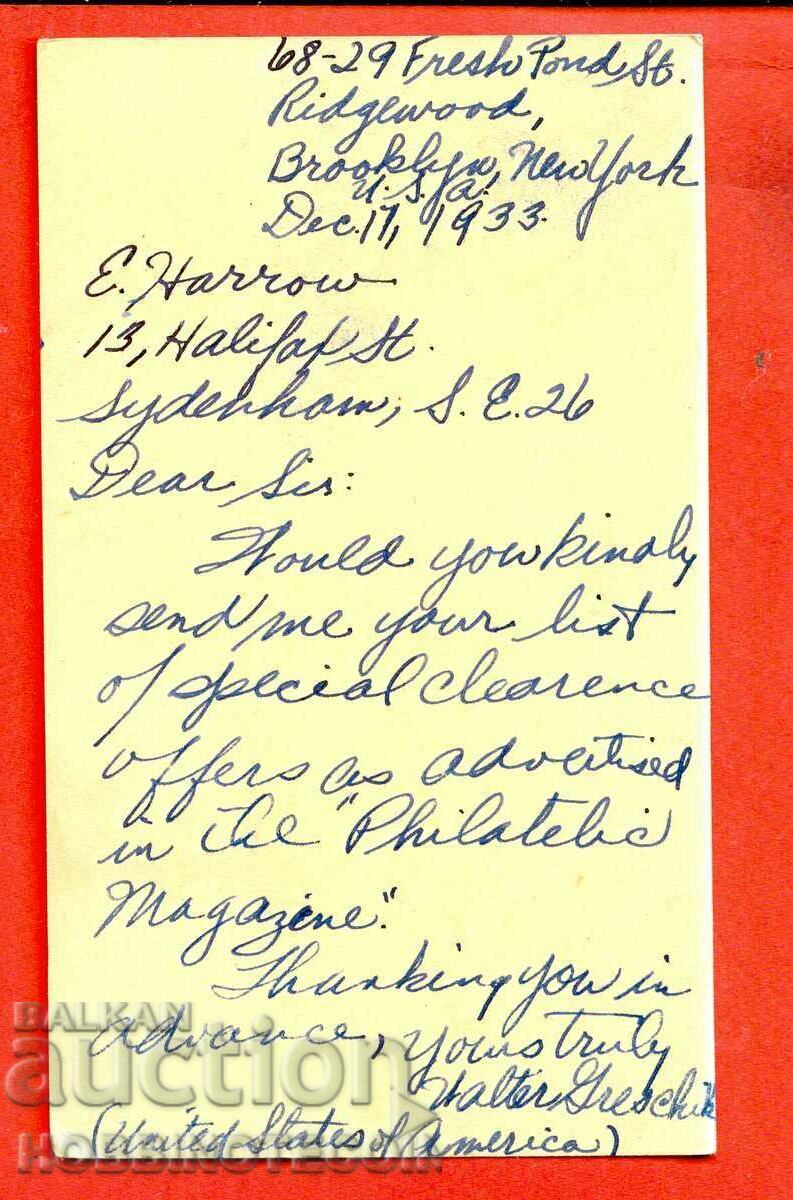 68-29 Fresh Pond St.
Ridgewood,
Brooklyn, New York
U.S.A.
Dec. 17, 1933.
E. Harrow
13, Halifax St.
Sydenham, S. E. 26
Dear Sir:
Would you kindly
send me your list
of special clearence
offers as advertised
in the "Philatelic
Magazine".
Thanking you in
advance, yours truly
Walter Greschik
(United States of America)
BALKAN
auction
HOBBINOTECOIN